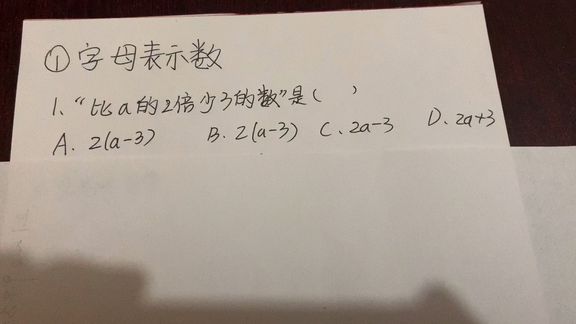 ①字母表示数
1、“比a的2倍少3的数”是( )
A. 2(a-3) B. 2(a-3) C. 2a-3 D. 2a+3